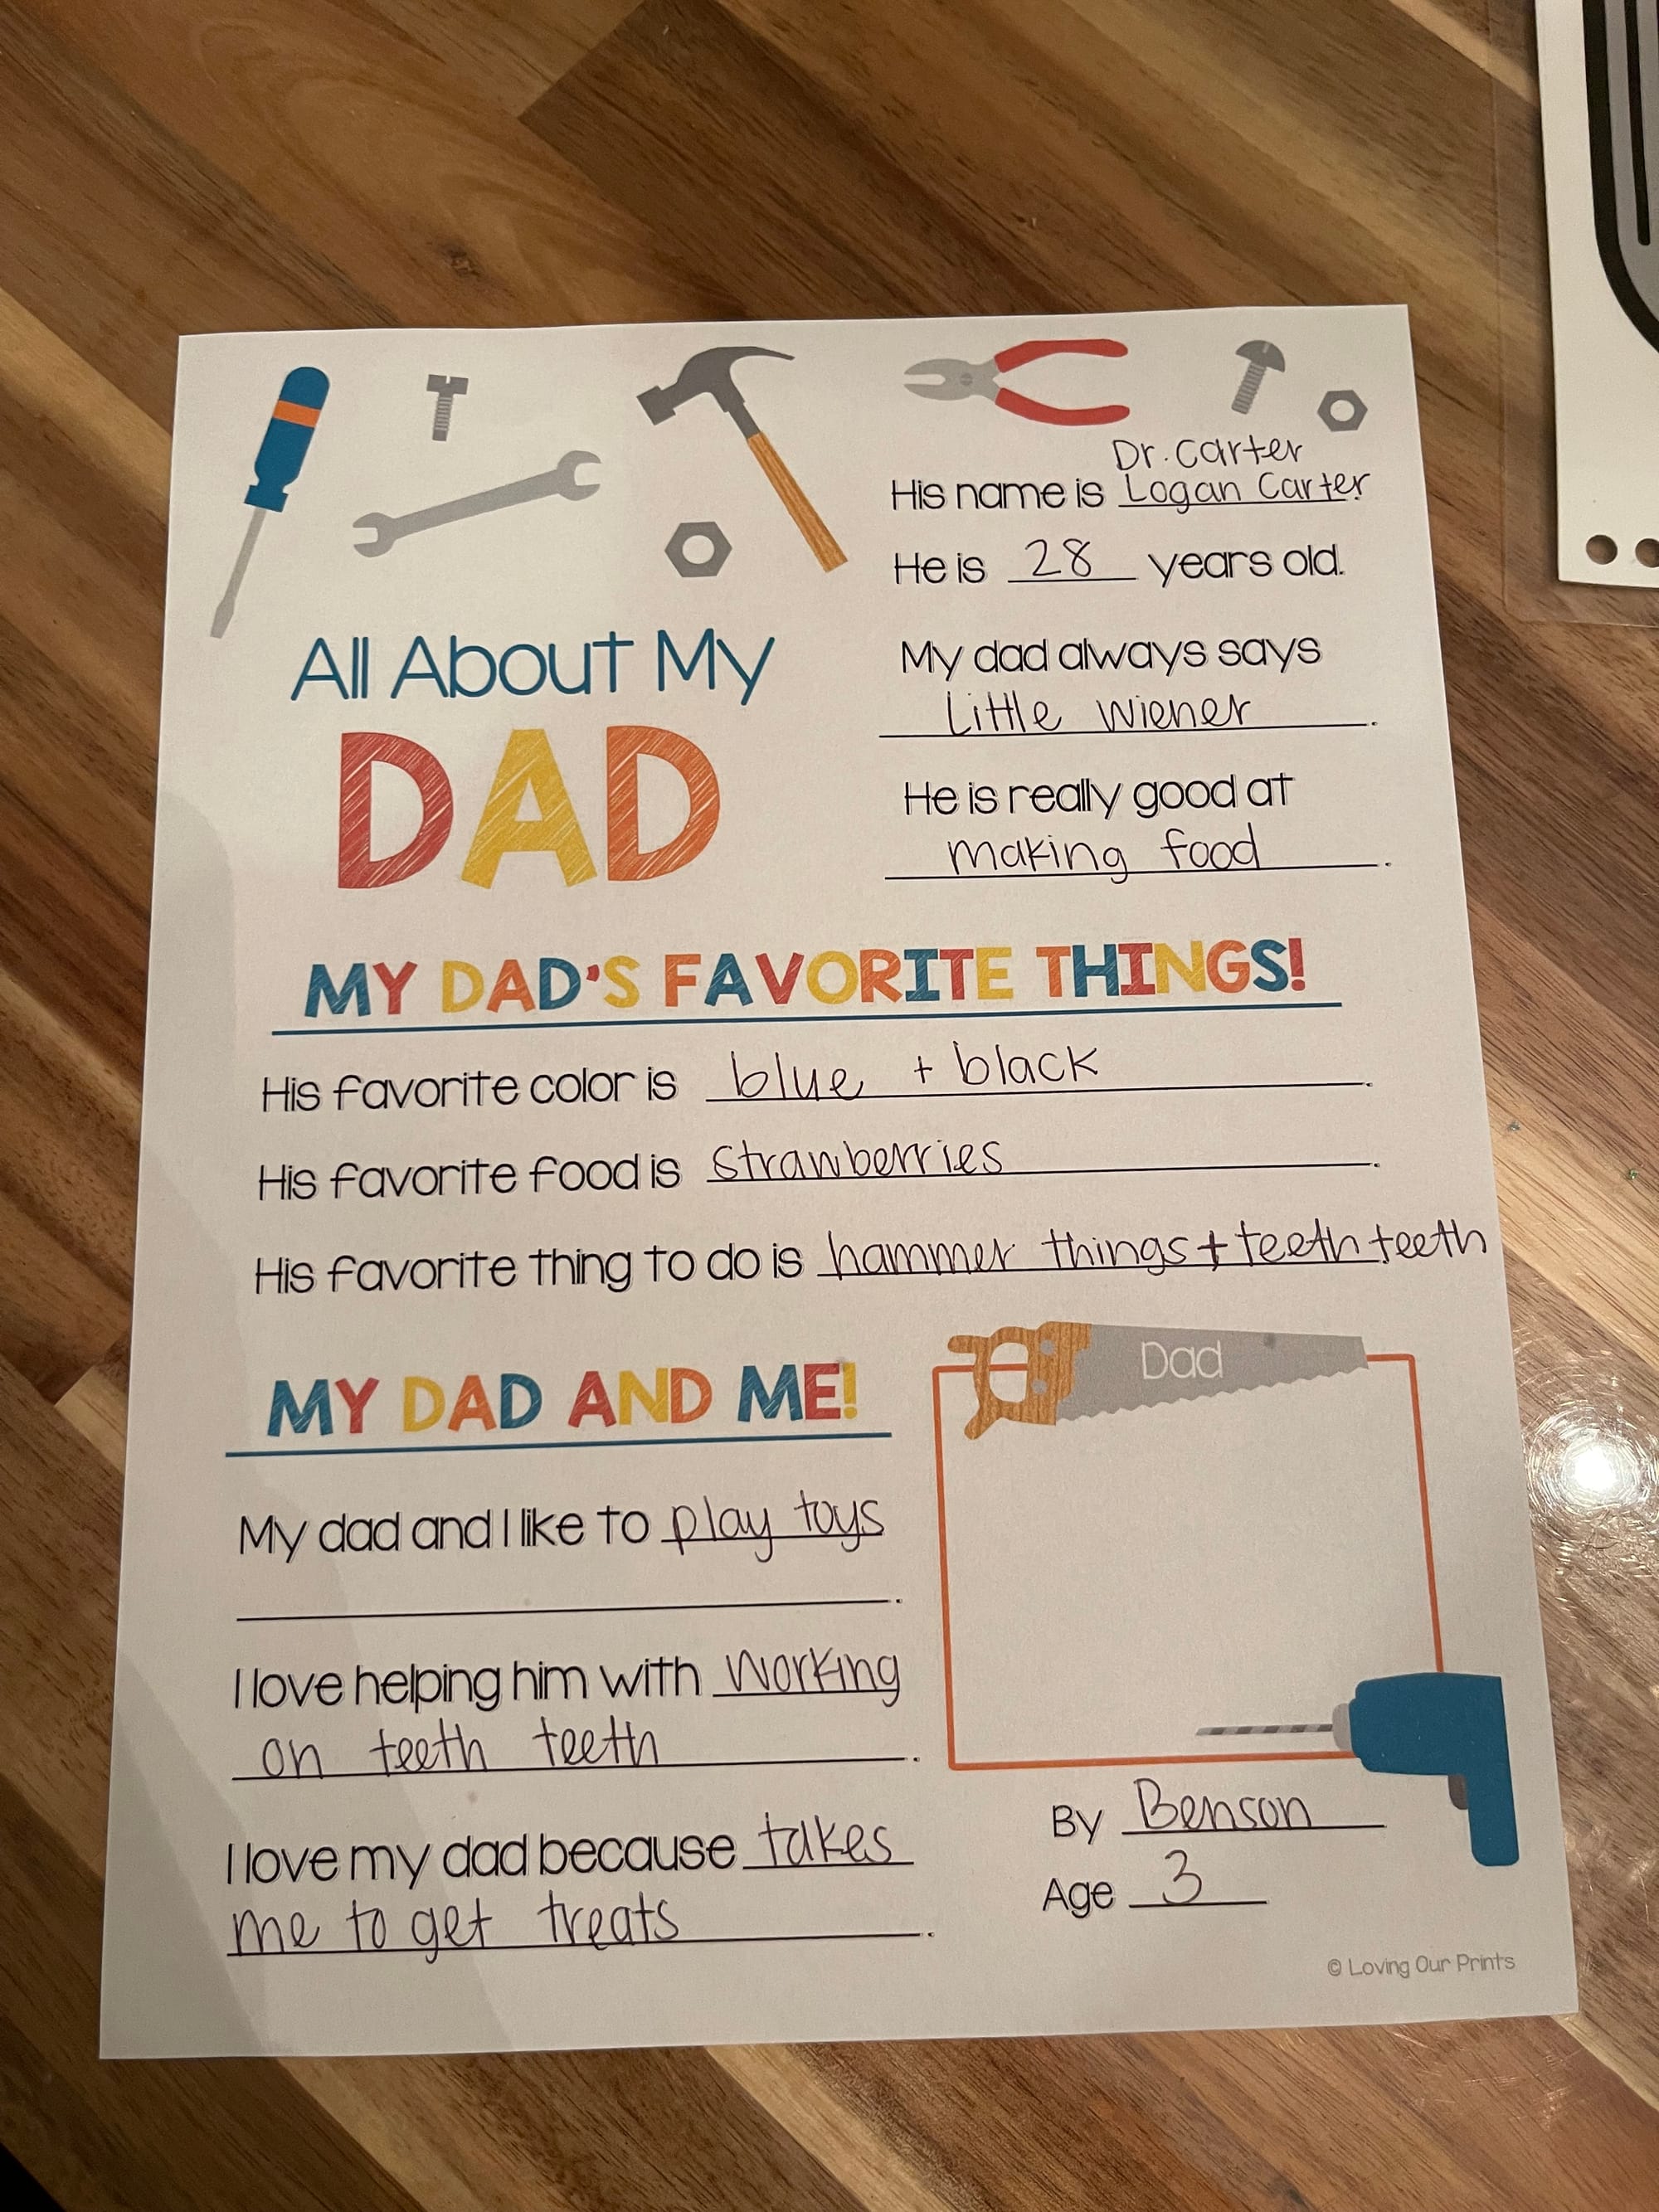 Dr. Carter
His name is Logan Carter.
He is 28 years old.
All About My
DAD
My dad always says
Little Wiener.
He is really good at
making food.
MY DAD'S FAVORITE THINGS!
His favorite color is blue + black.
His favorite food is strawberries.
His favorite thing to do is hammer things + teeth teeth.
MY DAD AND ME!
My dad and I like to play toys
.
I love helping him with working
on teeth teeth.
I love my dad because takes
me to get treats.
Dad
By Benson
Age 3
© Loving Our Prints